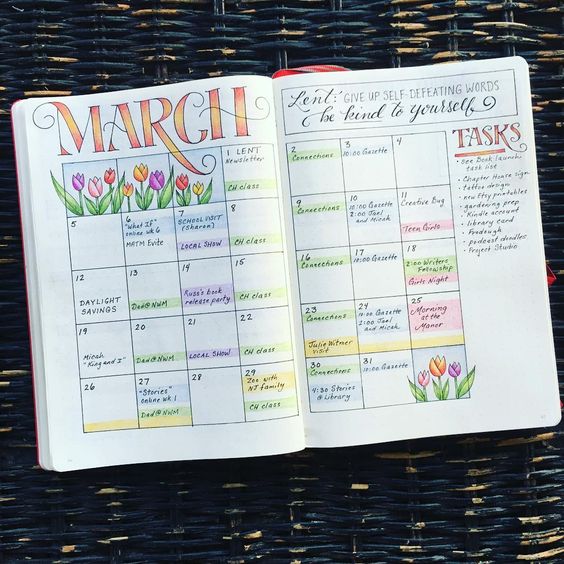 MARCH
1 LENT
Newsletter
CH class
5
6
"What If"
online wk 6
MATM Evite
7
SCHOOL VISIT
(Sharon)
LOCAL SHOW
8
CH class
12
DAYLIGHT
SAVINGS
13
Dad@NWM
14
Russ's book
release party
15
CH class
19
Micah
"King and I"
20
Dad@NWM
21
LOCAL SHOW
22
CH class
26
27
"Stories"
online wk 1
Dad@NWM
28
29
Zoo with
NJ family
CH class
Lent: GIVE UP SELF-DEFEATING WORDS
be kind to yourself
2
Connections
3
10:00 Gazette
4
9
Connections
10
10:00 Gazette
2:00 Joel
and Micah
11
Creative Bug
Teen Girls
16
Connections
17
10:00 Gazette
18
2:00 Writers
Fellowship
Girls Night
23
Connections
Julie Witmer
visit
24
10:00 Gazette
2:00 Joel
and Micah
25
Morning
at the
Manor
30
Connections
4:30 Stories
@ Library
31
10:00 Gazette
TASKS
• See Book launch
task list
• Chapter House sign
• tattoo design
• new Etsy printables
• gardening prep
• Kindle account
• library card
• Frodough
• podcast doodles
• Project Studio